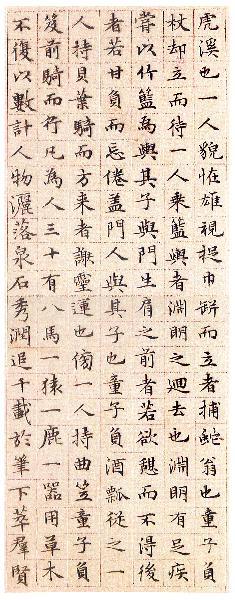 虎溪也一人貌恠雄視提巾缾而立者捕蛇翁也童子負
杖却立而待一人乘籃輿者淵明之迴去也淵明有足疾
嘗以竹籃為輿其子與門生肩之前者若欲憩而不得後
者若甘負而忘倦盖門人與其子也童子負酒瓢從之一
人持貝葉騎而方來者謝靈運也傍一人持曲笠童子負
笈前騎而行凡為人三十有八馬一猿一鹿一器用草木
不復以數計人物灑落泉石秀潤追千載於筆下萃群賢